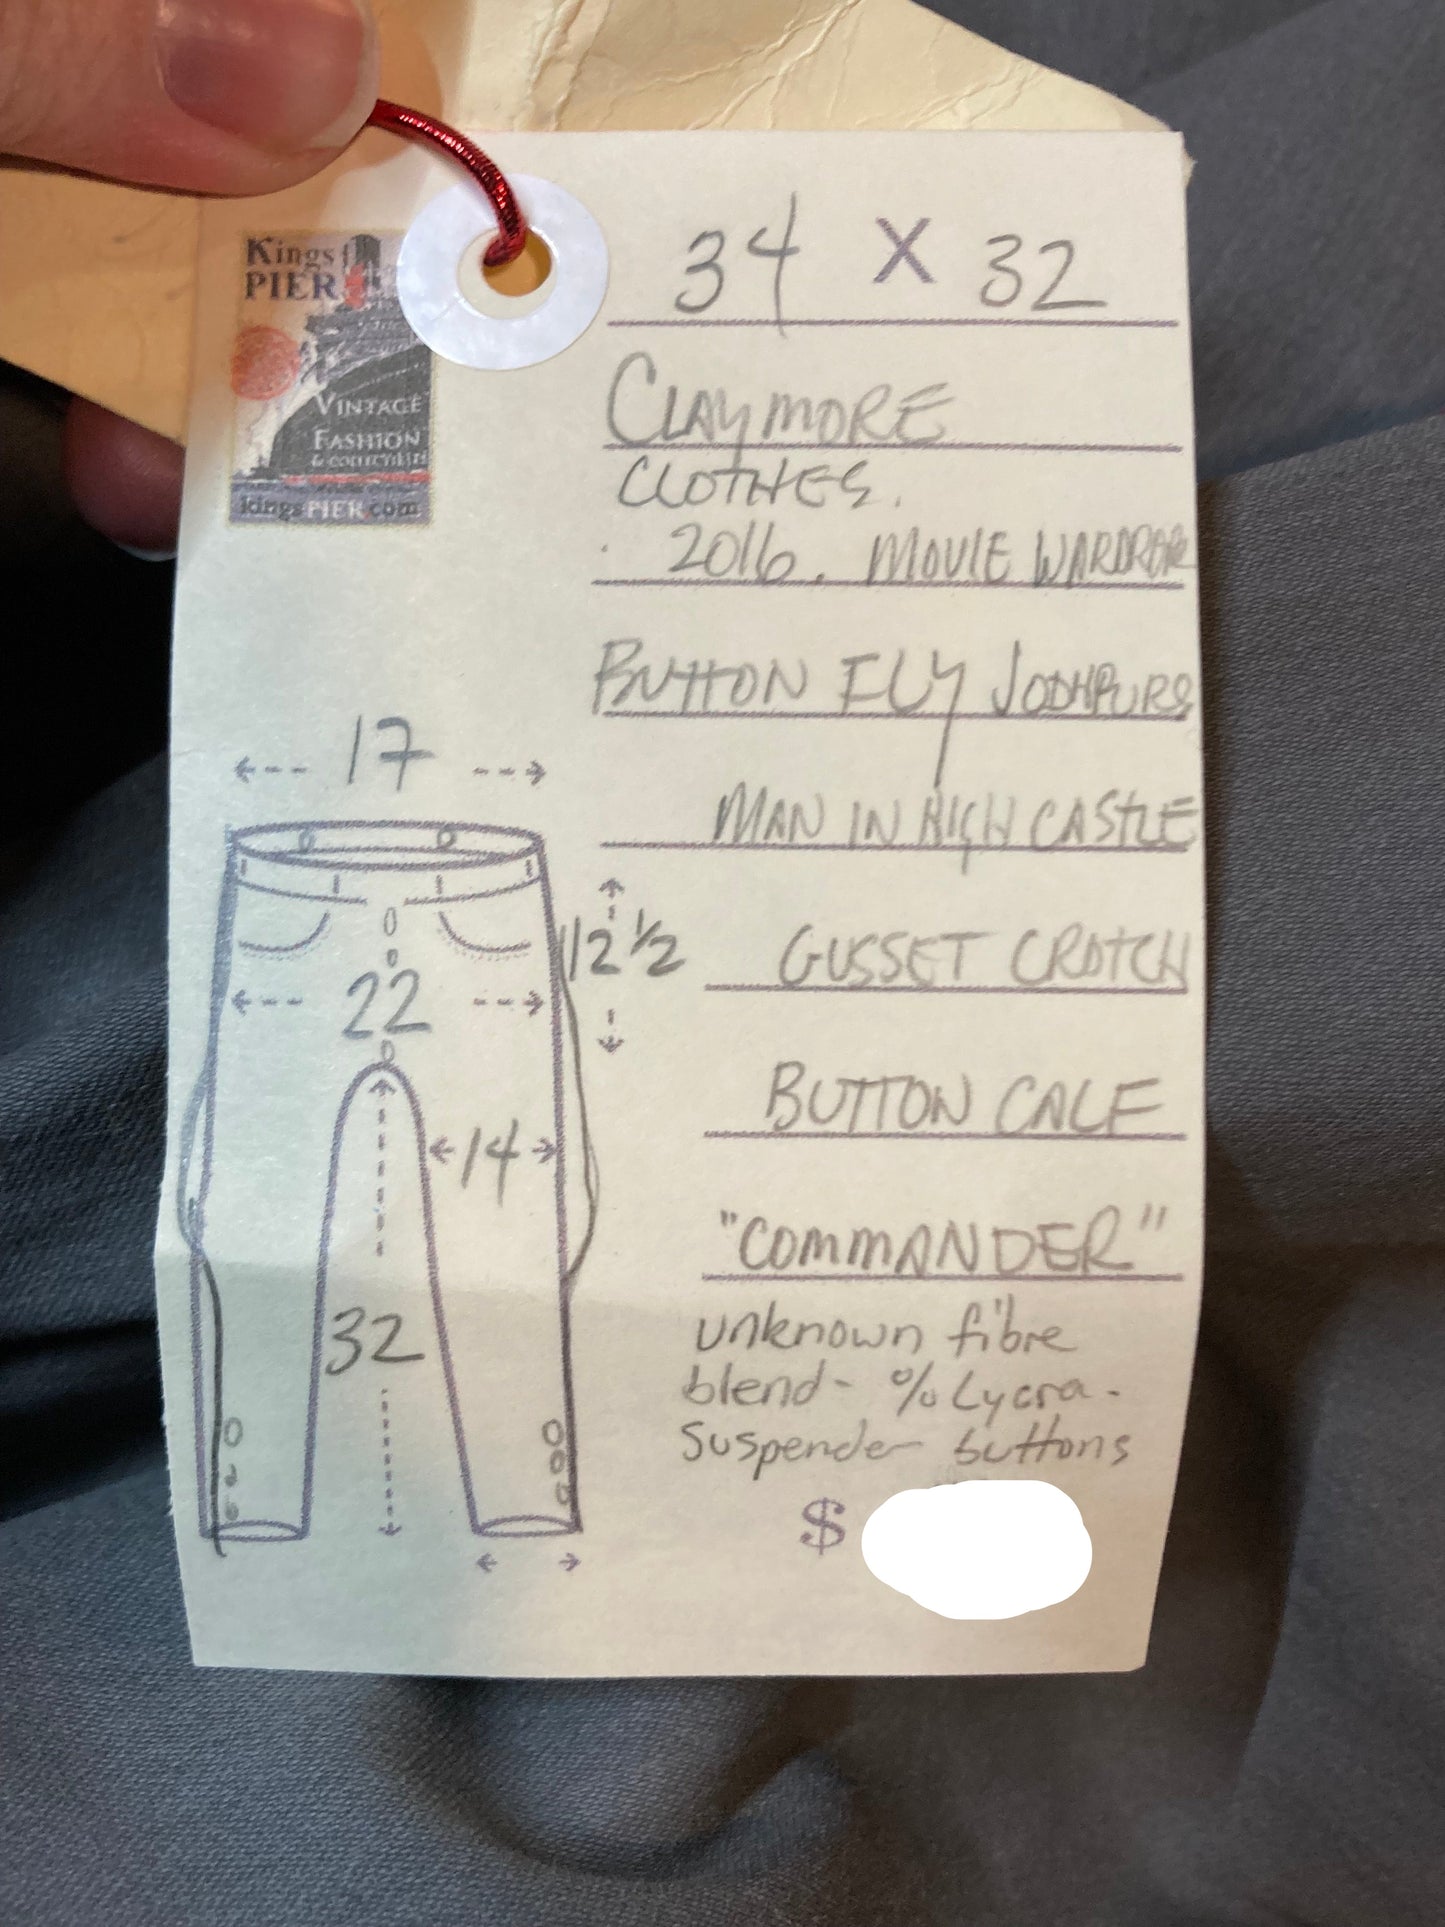 Kings
PIER
VINTAGE
FASHION
& COLLECTIBLES
kingsPIER.com
34 X 32
CLAYMORE
CLOTHES.
2016. MOVIE WARDROBE
BUTTON FLY JODHPURS
MAN IN HIGH CASTLE
GUSSET CROTCH
BUTTON CALF
"COMMANDER"
unknown fibre
blend - % Lycra.
suspender buttons
$
17
12 1/2
22
14
32